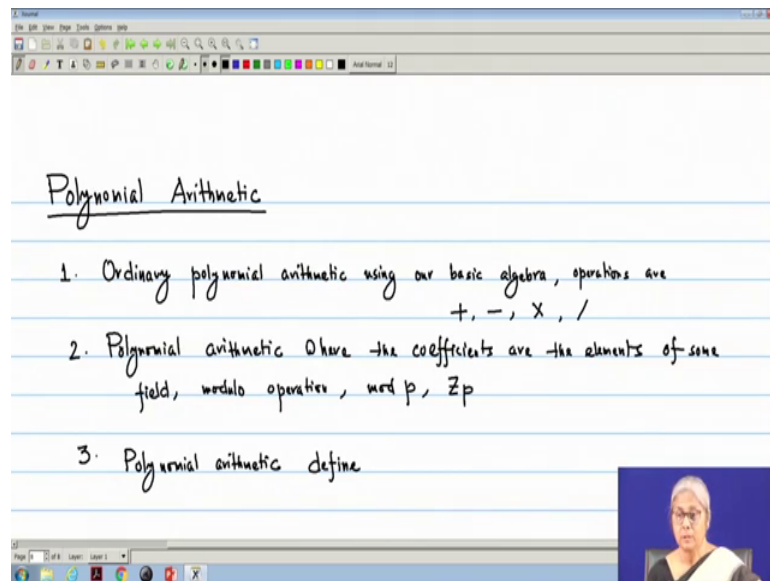 Journal
File Edit View Page Tools Options Help
Arial Normal 12
Polynomial Arithmetic
1. Ordinary polynomial arithmetic using our basic algebra, operations are
+, -, x, /
2. Polynomial arithmetic where the coefficients are the elements of some
field, modulo operation, mod p, Zp
3. Polynomial arithmetic define
Page of 8 Layer: Layer 1